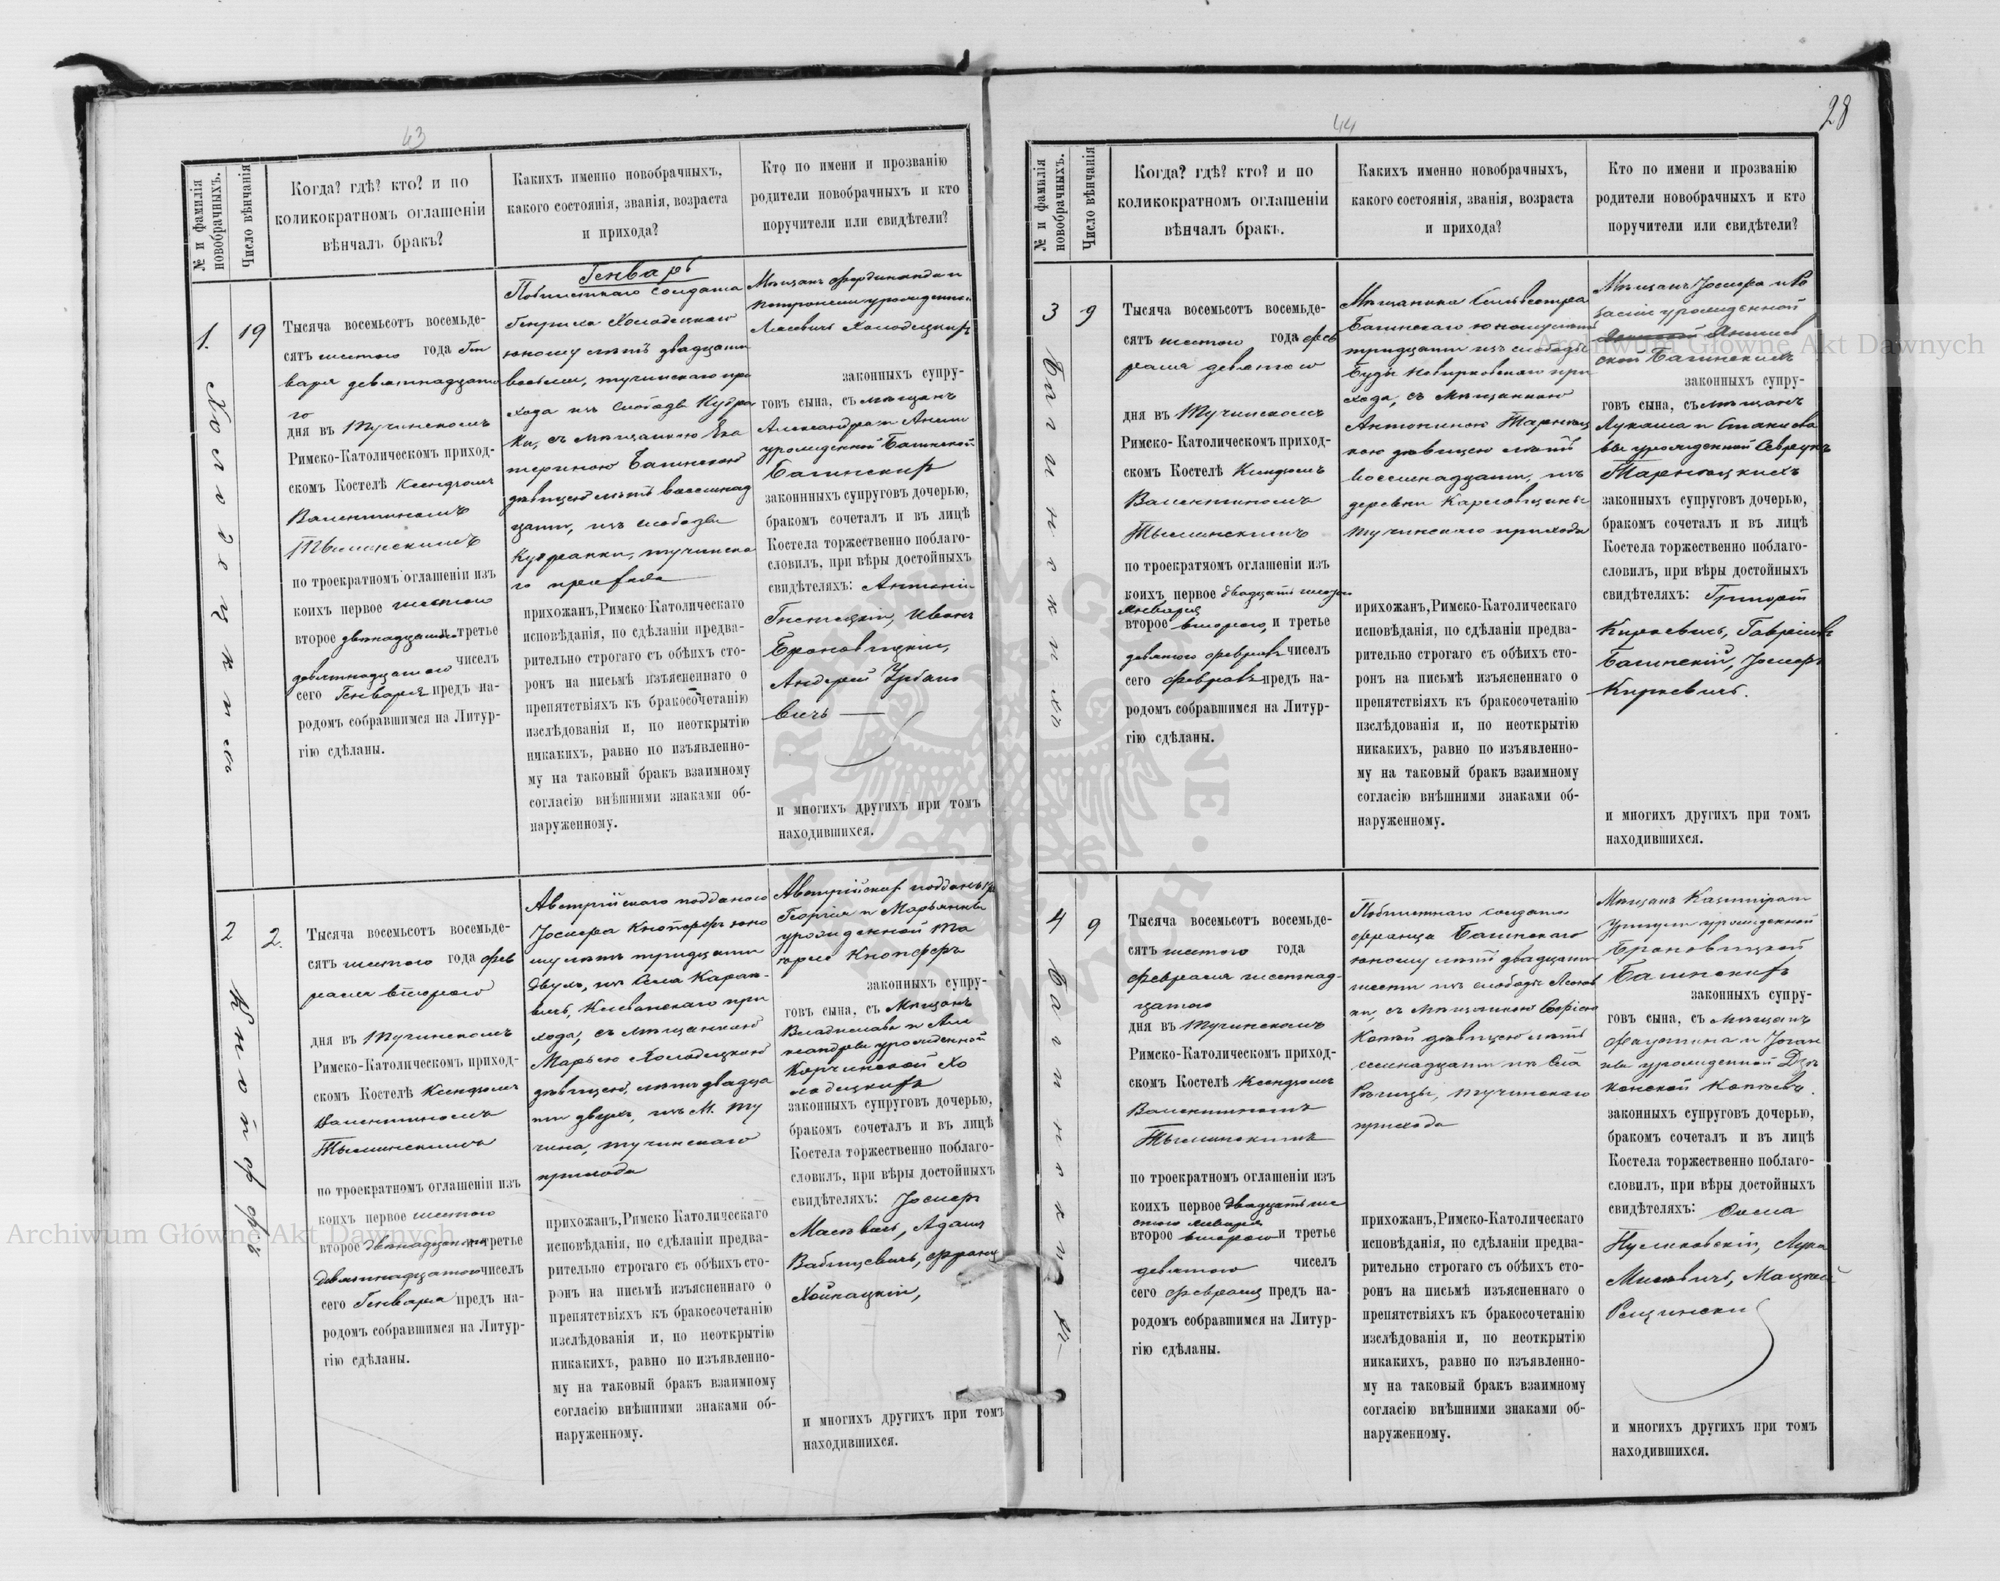 43
№ и фамилія новобрачныхъ.
Число вѣнчанія
Когда? гдѣ? кто? и по
коликократномъ оглашеніи
вѣнчалъ бракъ?
Какихъ именно новобрачныхъ,
какого состоянія, званія, возраста
и прихода?
Кто по имени и прозванію
родители новобрачныхъ и кто
поручители или свидѣтели?
Генварь
1.
Холодецкии
19
Тысяча восемьсотъ восемьде-
сятъ шестого года Ген
варя девятнадцато
го
дня въ Тучинскомъ
Римско-Католическомъ приход-
скомъ Костелѣ Ксендзомъ
Валентиномъ
по троекратномъ оглашеніи изъ
коихъ первое шестого
второе двѣнадцатаго третье
девятнадцатого чиселъ
сего Генваря предъ на-
родомъ собравшимся на Литур-
гію сдѣланы.
солдата
Генриха Холодецкаго
юношу лѣтъ двадцати
восьми, тучинскаго при
хода изъ слободы Кудра
ки, съ мѣщанкою Ека
териною Багинскою
дѣвицею лѣтъ восемнад
цати, изъ слободы
Кудранки, тучинска
го прихода
прихожан, Римско-Католическаго
исповѣданія, по сдѣланіи предва-
рительно строгаго съ обѣихъ сто-
ронъ на письмѣ изъясненнаго о
препятствіяхъ къ бракосочетанію
изслѣдованія и, по неоткрытію
никакихъ, равно по изъявленно-
му на таковый бракъ взаимному
согласію внѣшними знаками об-
наруженному.
Мѣщанъ Фердинанда и
Петронели урожденной
Холодецкихъ
законныхъ супру-
говъ сына, съ мѣщанъ
Александра и Анны
урожденной Багинской
Багинскихъ
законнныхъ супруговъ дочерью,
бракомъ сочеталъ и въ лицѣ
Костела торжественно поблаго-
словилъ, при вѣры достойныхъ
свидѣтеляхъ: Антоніи
Иванъ
Броновицкіи,
Андрей Урбано
вичъ
и многихъ другихъ при томъ
находившихся.
2
Кнопфъ
2.
Тысяча восемьсотъ восемьде-
сятъ шестого года фев
раля второго
дня въ Тучинскомъ
Римско-Католическомъ приход-
скомъ Костелѣ Ксендзомъ
Валентиномъ
по троекратномъ оглашеніи изъ
коихъ первое шестого
второе двѣнадцатого третье
девятнадцатого чиселъ
сего Генваря предъ на-
родомъ собравшимся на Литур-
гію сдѣланы.
Австрійскаго подданого
Іосифа юно
шу лѣтъ тридцати
двухъ, изъ села
Клеванскаго при
хода, съ мѣщанкою
Марьею Холодецкою
дѣвицею, лѣтъ двадца
ти двухъ, изъ М. Ту
чина, тучинскаго
прихода
прихожан, Римско Католическаго
исповѣданія, по сдѣланіи предва-
рительно строгаго съ обѣихъ сто-
ронъ на письмѣ изъясненнаго о
препятствіяхъ къ бракосочетанію
изслѣдованія и, по неоткрытію
никакихъ, равно по изъявленно-
му на таковый бракъ взаимному
согласію внѣшними знаками об-
наруженному.
Австрійскихъ подданыхъ
Георгія и Марьянны
урожденной
законныхъ супру-
говъ сына, съ Мѣщанъ
Владислава и Але
ксандры урожденной
Корчинской Хо
лодецкихъ
законныхъ супруговъ дочерью,
бракомъ сочеталъ и въ лицѣ
Костела торжественно поблаго-
словилъ, при вѣры достойныхъ
свидѣтеляхъ: Іосифъ
Адамъ
Францъ
Хойнацкіи,
и многихъ другихъ при томъ
находившихся.
44
28
№ и фамилія новобрачныхъ.
Число вѣнчанія
Когда? гдѣ? кто? и по
коликократномъ оглашеніи
вѣнчалъ бракъ.
Какихъ именно новобрачныхъ,
какого состоянія, званія, возраста
и прихода?
Кто по имени и прозванію
родители новобрачныхъ и кто
поручители или свидѣтели?
3
Багинскихъ
9
Тысяча восемьсотъ восемьде-
сятъ шестого года фев
раля девятого
дня въ Тучинскомъ
Римско-Католическомъ приход-
скомъ Костелѣ Ксендзомъ
Валентиномъ
по троекратномъ оглашеніи изъ
коихъ первое двадцать шестого
Января
второе второго, и третье
девятого февраля чиселъ
сего февраля предъ на-
родомъ собравшимся на Литур-
гію сдѣланы.
Мѣщанина Сильвестра
Багинскаго юношу лѣтъ
тридцати изъ слободы
Буды при
хода, съ Мѣщанкою
Антониною
кою дѣвицею лѣтъ
восемнадцати, изъ
деревни Карловщины
тучинскаго прихода
прихожан, Римско-Католическаго
исповѣданія, по сдѣланіи предва-
рительно строгаго съ обѣихъ сто-
ронъ на письмѣ изъясненнаго о
препятствіяхъ къ бракосочетанію
изслѣдованія и, по неоткрытію
никакихъ, равно по изъявленно-
му на таковый бракъ взаимному
согласію внѣшними знаками об-
наруженному.
Мѣщанъ Іосифа и Ро
заліи урожденной
ской Багинскихъ
законныхъ супру-
говъ сына, съ мѣщанъ
Лукаша и Станисла
вы урожденной
законныхъ супруговъ дочерью,
бракомъ сочеталъ и въ лицѣ
Костела торжественно поблаго-
словилъ, при вѣры достойныхъ
свидѣтеляхъ: Григорій
Киркевичъ,
Багинскій, Іосифъ
Киркевичъ.
и многихъ другихъ при томъ
находившихся.
4
Багинскихъ
9
Тысяча восемьсотъ восемьде-
сятъ шестого года
февраля шестнад
цатого
дня въ Тучинскомъ
Римско-Католическомъ приход-
скомъ Костелѣ Ксендзомъ
Валентиномъ
по троекратномъ оглашеніи изъ
коихъ первое двадцать ше
стого января
второе второго и третье
девятого чиселъ
сего февраля предъ на-
родомъ собравшимся на Литур-
гію сдѣланы.
солдата
Франца Багинскаго
юношу лѣтъ двадцати
шести изъ слободы
съ мѣщанкою Софіею
дѣвицею лѣтъ
семнадцати изъ села
тучинскаго
прихода
прихожан, Римско-Католическаго
исповѣданія, по сдѣланіи предва-
рительно строгаго съ обѣихъ сто-
ронъ на письмѣ изъясненнаго о
препятствіяхъ къ бракосочетанію
изслѣдованія и, по неоткрытію
никакихъ, равно по изъявленно-
му на таковый бракъ взаимному
согласію внѣшними знаками об-
наруженному.
Мѣщанъ Казиміра и
урожденной
Броновицкой
Багинскихъ
законныхъ супру-
говъ сына, съ мѣщанъ
Фаустина и
урожденной
законныхъ супруговъ дочерью,
бракомъ сочеталъ и въ лицѣ
Костела торжественно поблаго-
словилъ, при вѣры достойныхъ
свидѣтеляхъ:
Лука
и многихъ другихъ при томъ
находившихся.
Archiwum Główne Akt Dawnych
Archiwum Główne Akt Dawnych